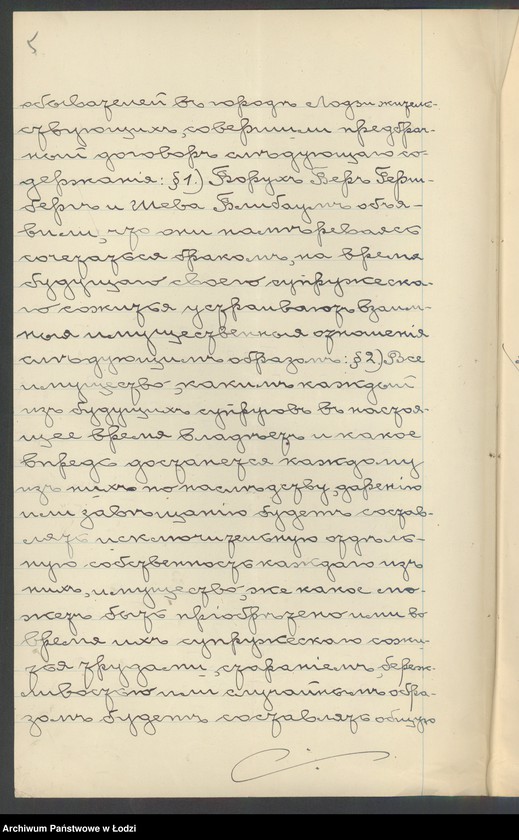 5
обывателей въ городѣ Лодзи житель-
ствующихъ, совершили предбрач-
ный договоръ слѣдующаго со-
держанія: § 1.) Борухъ Беръ Герш-
бергъ и Шева Блибаумъ объя-
вили, что они намѣреваясь
сочетаться бракомъ, на время
будущаго своего супружеска-
го сожитья устраиваютъ взаим-
ныя имущественныя отношенія
слѣдующимъ образомъ: § 2.) Все
имущество, какимъ каждый
изъ будущихъ супруговъ въ настоя-
щее время владѣетъ и какое
впредь достанется каждому
изъ нихъ по наслѣдству, даренію
или завѣщанію будетъ состав-
лять исключительную отдѣль-
ную собственность каждаго изъ
нихъ, имущество же какое мо-
жетъ быть пріобрѣтено ими во
время ихъ супружескаго сожи-
тья трудами, стараніемъ, береж-
ливостью или случайнымъ обра-
зомъ будетъ составлять общую
Archiwum Państwowe w Łodzi